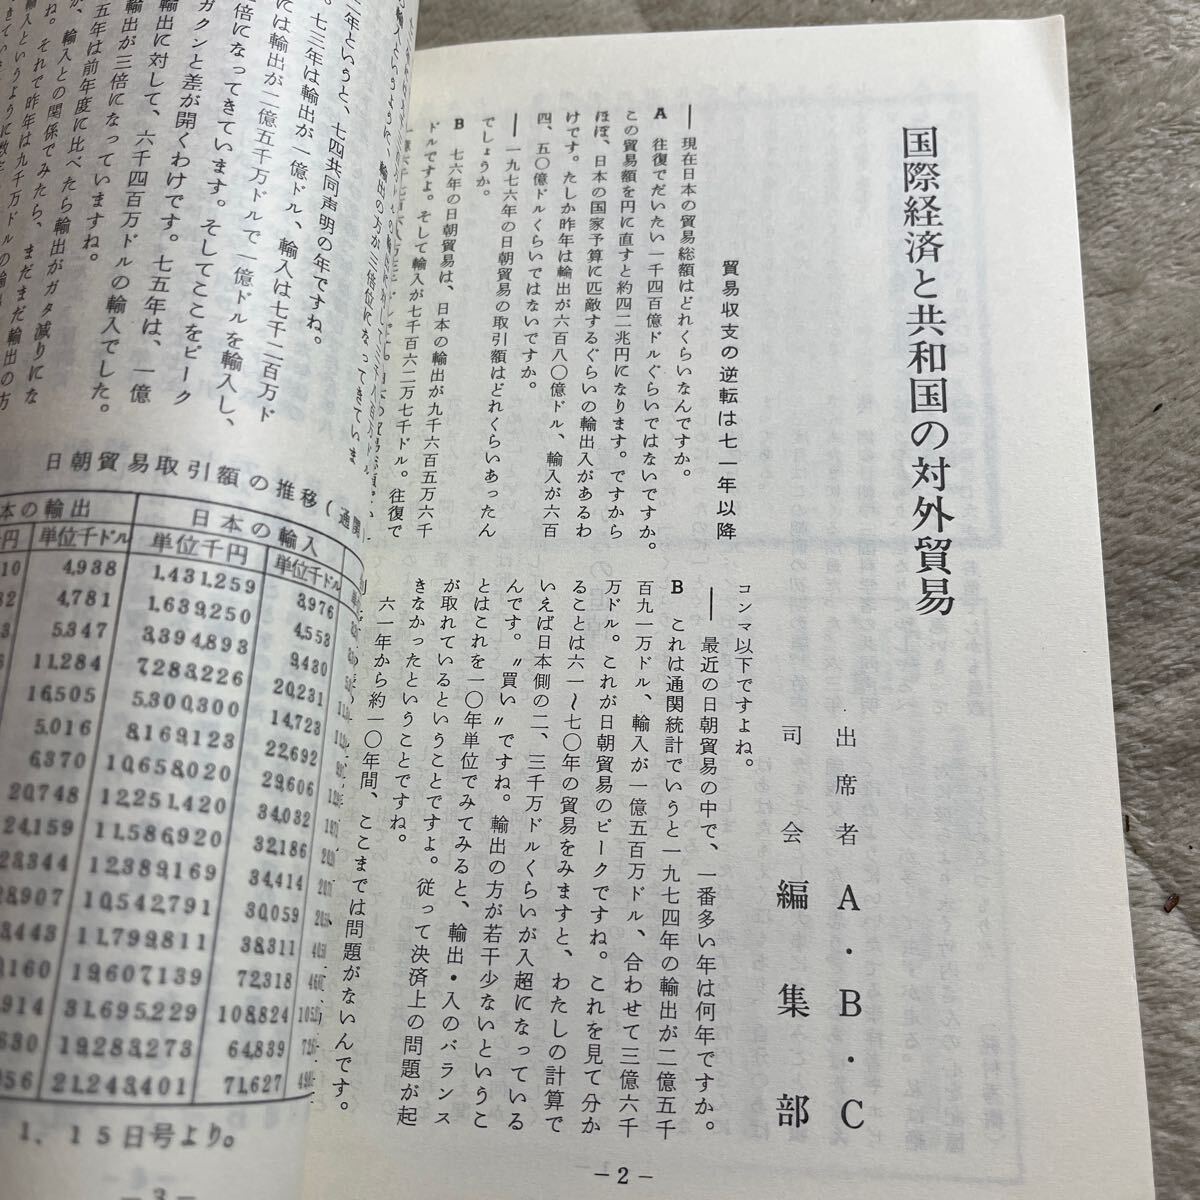 国際経済と共和国の対外貿易
出席者 A・B・C
司会 編集部
貿易収支の逆転は七一年以降
――現在日本の貿易総額はどれくらいなんですか。
A 往復でだいたい一千四百億ドルぐらいではないですか。
この貿易額を円に直すと約四二兆円になります。ですから
ほぼ、日本の国家予算に匹敵するぐらいの輸出入があるわ
けです。たしか昨年は輸出が六百八〇億ドル、輸入が六百
四、五〇億ドルくらいではないですか。
――一九七六年の日朝貿易の取引額はどれくらいあったん
でしょうか。
B 七六年の日朝貿易は、日本の輸出が九千六百五万六千
ドルですよ。そして輸入が七千百六二万七千ドル。往復で
コンマ以下ですよね。
――最近の日朝貿易の中で、一番多い年は何年ですか。
B これは通関統計でいうと一九七四年の輸出が二億五千
百九一万ドル、輸入が一億五百万ドル、合わせて三億六千
万ドル。これが日朝貿易のピークですね。これを見て分か
ることは六一〜七〇年の貿易をみますと、わたしの計算で
いえば日本側の二、三千万ドルくらいが入超になっている
んです。〝買い〟ですね。輸出の方が若干少ないというこ
とはこれを一〇年単位でみてみると、輸出・入のバランス
が取れているということですよ。従って決済上の問題が起
きなかったということですね。
六一年から約一〇年間、ここまでは問題がないんです。
－2－
輸出の方が三倍位になってきていま
二年というと、七四共同声明の年ですね。
。七三年は輸出が一億ドル、輸入は七千二百万ド
には輸出が二億五千万ドルで一億ドルを輸入し、
倍になってきています。そしてここをピーク
ガクンと差が開くわけです。七五年は、一億
輸出に対して、六千四百万ドルの輸入でした。
輸出が三倍になっていますね。
五年は前年度に比べたら輸出がガタ減りにな
が、輸入との関係でみたら、まだまだ輸出の方
ね。それで昨年は九千万ドルの輸
日朝貿易取引額の推移(通関
本の輸出 日本の輸入
千円 単位千ドル 単位千円 単位千ドル
10 4,938 1,431,259 3,976
4,781 1,639,250 4,553
5,347 3,394,893 9,430
11,284 7,283,226 20,231
16,505 5,300,300 14,723
5,016 8,169,123 22,692
6,370 10,658,020 29,606
20,748 12,251,420 34,032
24,159 11,586,920 32,186
23,344 12,389,169 34,414
28,907 10,542,791 30,059
3,443 11,799,811 38,311
160 19,607,139 72,318
914 31,695,229 108,824
630 19,283,273 64,839
056 21,243,401 71,627
1、15日号より。
－3－